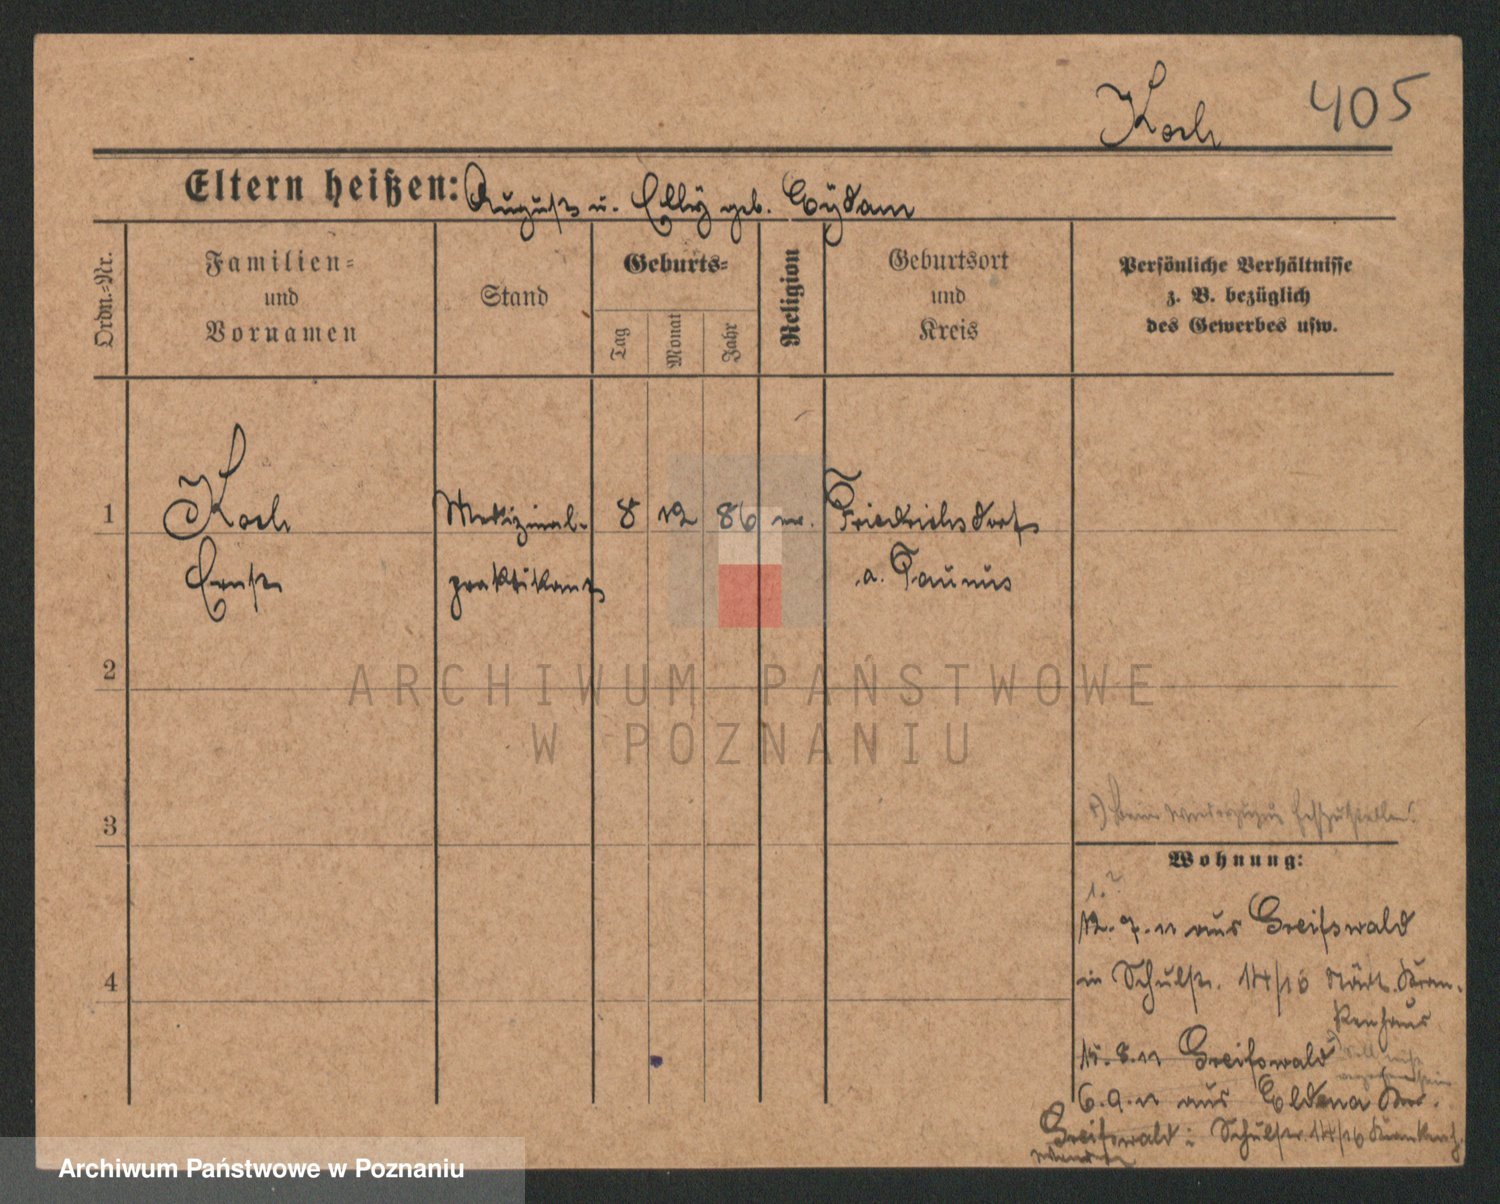 Koch 405
Eltern heißen: August u. Elly geb. Eydam
Ordn.=Nr.
Familien=
und
Vornamen
Stand
Geburts=
Tag
Monat
Jahr
Religion
Geburtsort
und
Kreis
Persönliche Verhältnisse
z. B. bezüglich
des Gewerbes usw.
1 Koch Medizinal- 8 12 86 ev. Friedrichsdorf
Ernst praktikant a. Taunus
2
3
4
beim festzustellen!
Wohnung:
1.
12. 7. 11 aus Greifswald
in Schulstr. 14/16 Städt. Kran-
kenhaus
15. 8. 11 Greifswald
6. 9. 11 aus Eldena Kr.
Greifswald i Schulstr. 14/16 Krankenh.
ARCHIWUM PAŃSTWOWE
W POZNANIU
Archiwum Państwowe w Poznaniu